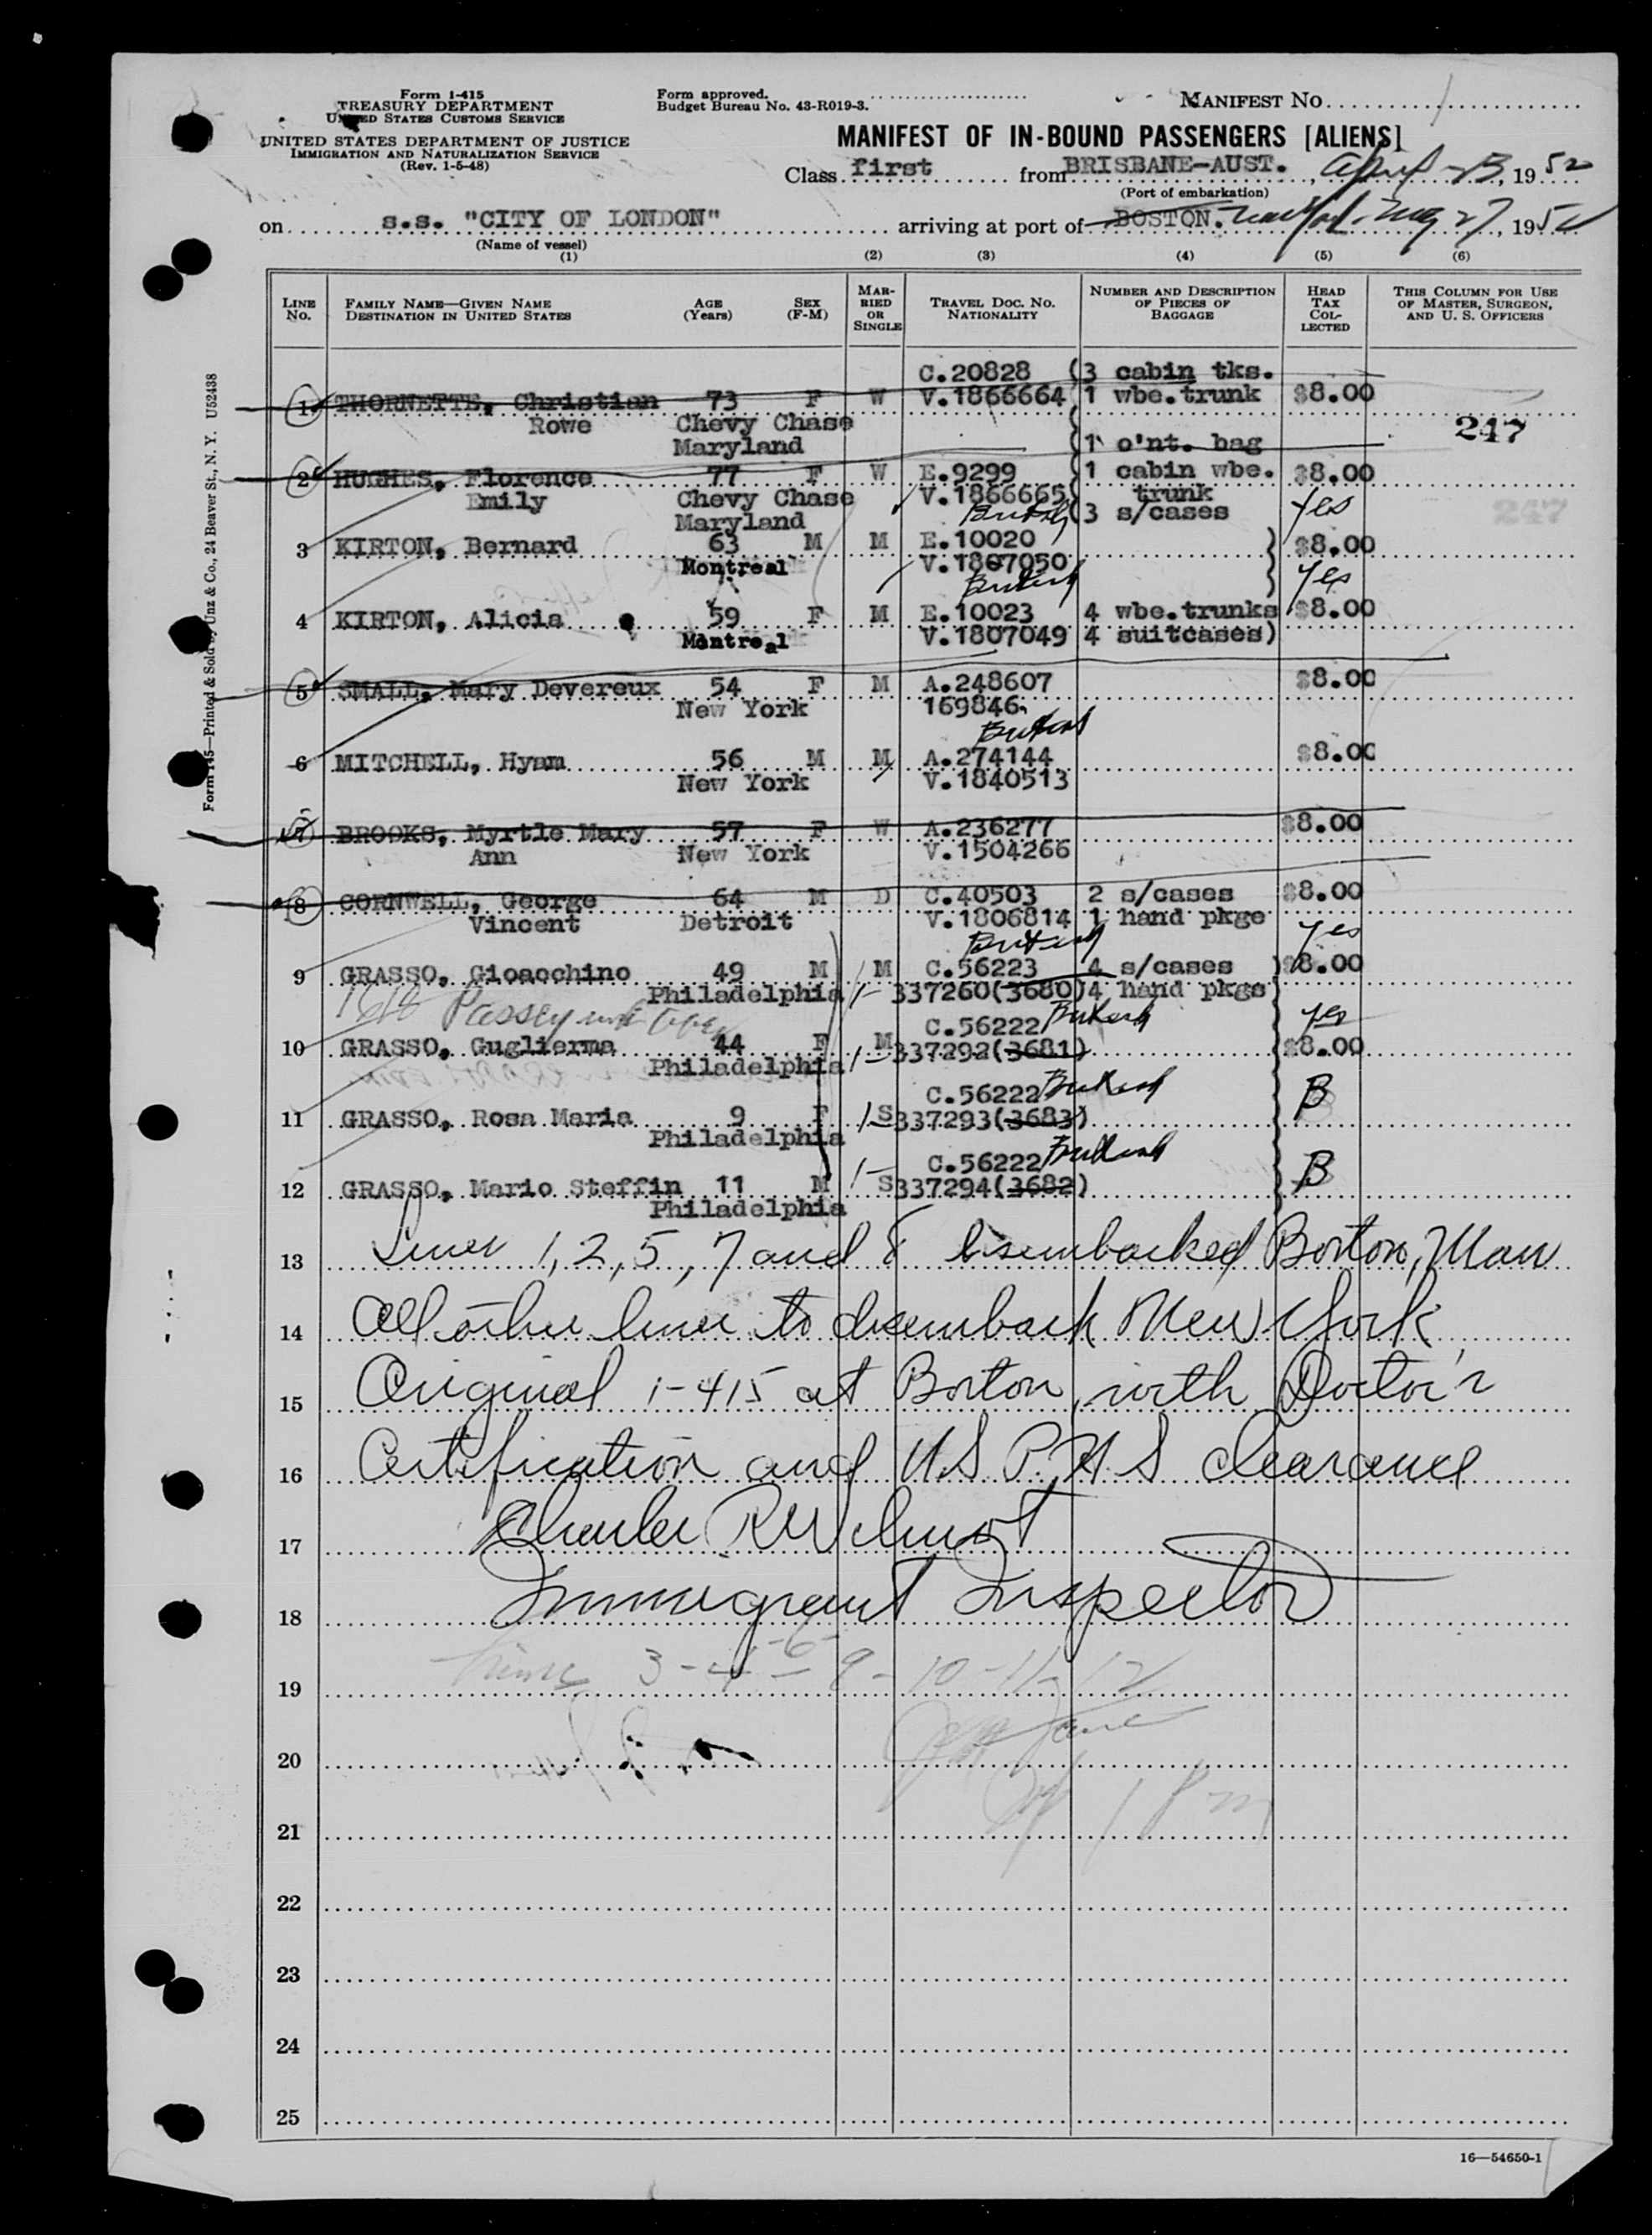 Form 1-415
TREASURY DEPARTMENT
UNITED STATES CUSTOMS SERVICE
UNITED STATES DEPARTMENT OF JUSTICE
IMMIGRATION AND NATURALIZATION SERVICE
(Rev. 1-5-48)
Form approved.
Budget Bureau No. 43-R019-3.
MANIFEST NO.
MANIFEST OF IN-BOUND PASSENGERS [ALIENS]
Class first from BRISBANE-AUST., April 23, 1952
(Port of embarkation)
on s.s. "CITY OF LONDON" arriving at port of BOSTON. New York May 27, 1952
(Name of vessel)
(1) (2) (3) (4) (5) (6)
LINE No. FAMILY NAME—GIVEN NAME DESTINATION IN UNITED STATES AGE (Years) SEX (F-M) MARRIED OR SINGLE TRAVEL DOC. NO. NATIONALITY NUMBER AND DESCRIPTION OF PIECES OF BAGGAGE HEAD TAX COLLECTED THIS COLUMN FOR USE OF MASTER, SURGEON, AND U. S. OFFICERS
C.20828 (3 cabin tks.
1 THORNETTE, Christian 73 F W V.1866664 1 wbe.trunk $8.00
Rowe Chevy Chase 247
Maryland (1 o'nt. bag
2 HUGHES, Florence 77 F W E.9299 (1 cabin wbe. $8.00
Emily Chevy Chase V.1866665( trunk Yes
Maryland British (3 s/cases 247
3 KIRTON, Bernard 63 M M E.10020 ) $8.00
Montreal V.1807050 ) Yes
British
4 KIRTON, Alicia 59 F M E.10023 4 wbe.trunks $8.00
Montreal V.1807049 4 suitcases)
5 SMALL, Mary Devereux 54 F M A.248607 $8.00
New York 169846.
British
6 MITCHELL, Hyam 56 M M A.274144 $8.00
New York V.1840513
7 BROOKS, Myrtle Mary 57 F W A.236277 $8.00
Ann New York V.1504266
8 CORNWELL, George 64 M D C.40503 2 s/cases $8.00
Vincent Detroit V.1806814 1 hand pkge
British Yes
9 GRASSO, Gioacchino 49 M M C.56223 4 s/cases ) $8.00
Philadelphia 337260(3680) 4 hand pkgs)
C.56222 British yes
10 GRASSO, Guglierma 44 F M 337292(3681) $8.00
Philadelphia
C.56222 British B
11 GRASSO, Rosa Maria 9 F S 337293(3683)
Philadelphia
C.56222 British B
12 GRASSO, Mario Steffin 11 M S 337294(3682)
Philadelphia
13 Lines 1, 2, 5, 7 and 8 disembarked Boston, Mass
14 All other lines to disembark New York
15 Original 1-415 at Boston, with Doctor's
16 Certification and U.S.P.H.S clearance
17 Charles R Wilmot
18 Immigrant Inspector
19 Lines 3-4-6-9-10-11-12
20
21
22
23
24
25
16—54650-1
Form 415—Printed & Sold by Unz & Co., 24 Beaver St., N. Y. U52438